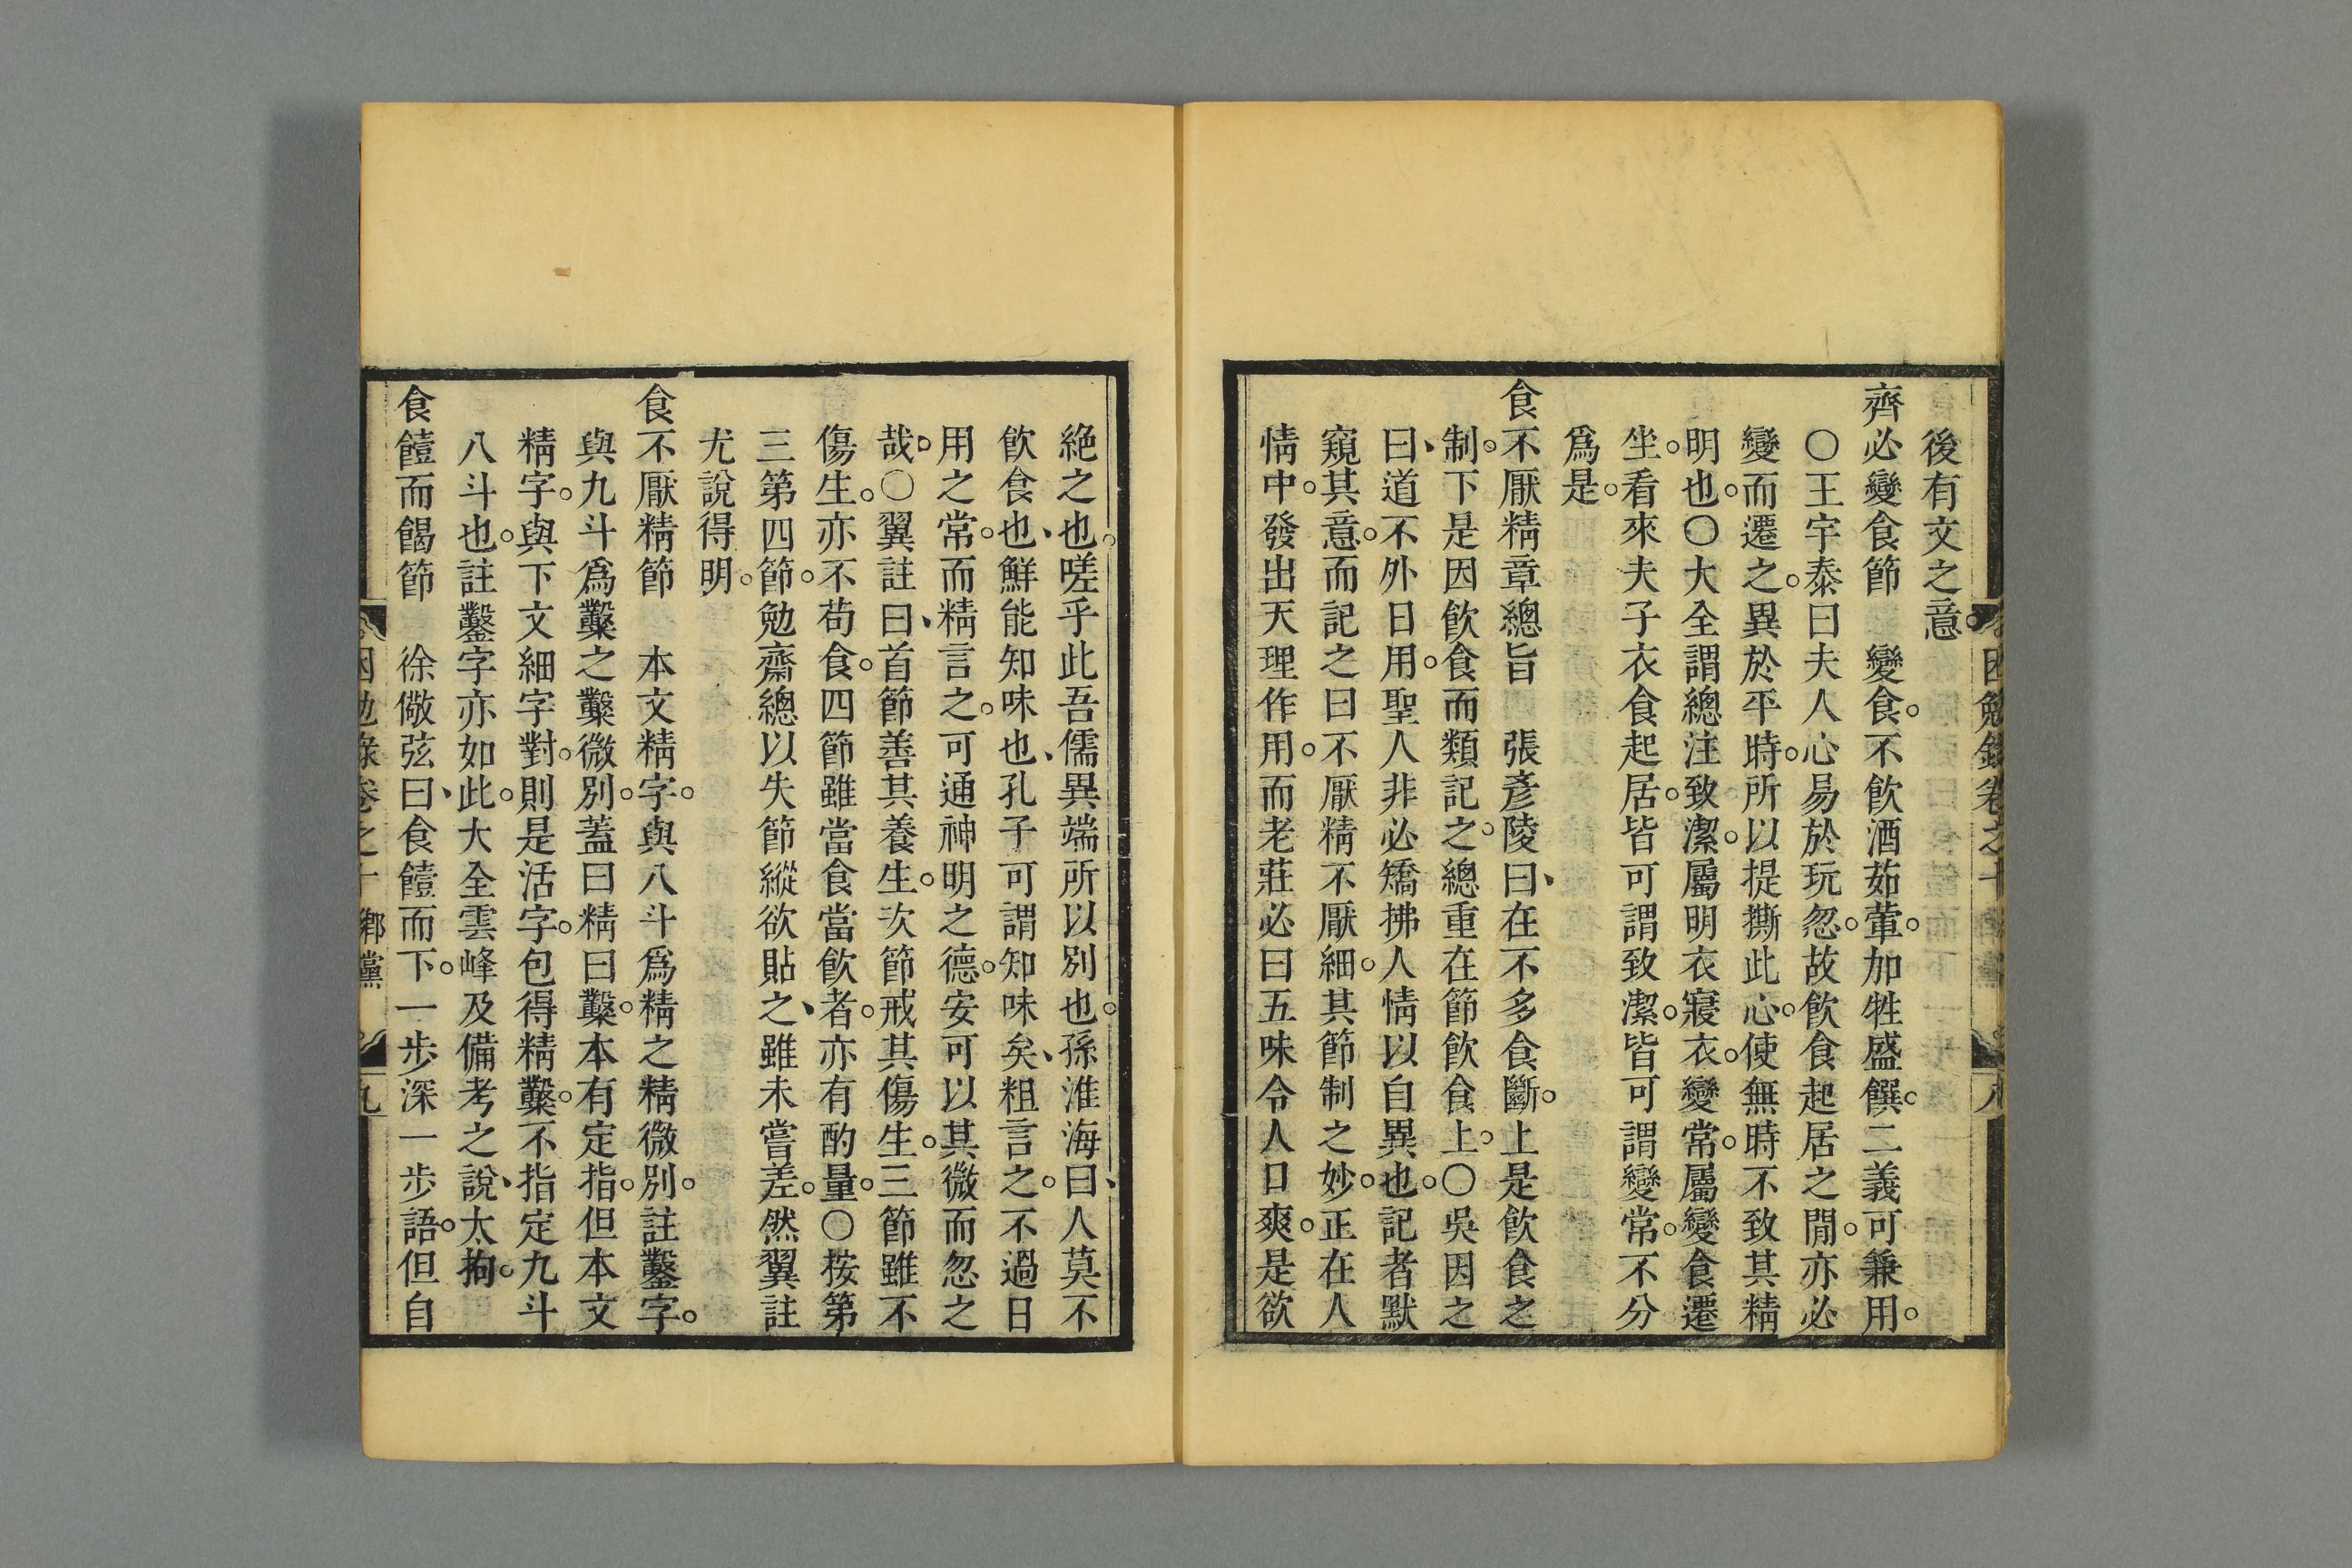 後有交之意。
齊必變食節　變食。不飲酒茹葷。加牲盛饌。二義可兼用。
〇王宇泰曰夫人心易於玩忽。故飲食起居之閒。亦必
變而遷之。異於平時。所以提撕此心。使無時不致其精
明也。〇大全謂總注致潔。屬明衣寢衣。變常。屬變食遷
坐。看來夫子衣食起居。皆可謂致潔。皆可謂變常。不分
爲是。
食不厭精章總旨　張彥陵曰、在不多食斷。上是飲食之
制。下是因飲食而類記之。總重在節飲食上。〇吳因之
曰、道不外日用。聖人非必矯拂人情以自異也。記者默
窺其意。而記之曰不厭精不厭細。其節制之妙。正在人
情中。發出天理作用。而老莊必曰五味令人口爽。是欲
困勉錄卷之十
八
絶之也。嗟乎此吾儒異端所以別也。孫淮海曰、人莫不
飲食也、鮮能知味也、孔子可謂知味矣、粗言之。不過日
用之常。而精言之。可通神明之德。安可以其微而忽之
哉。〇翼註曰、首節善其養生。次節戒其傷生。三節雖不
傷生。亦不苟食。四節雖當食當飲者。亦有酌量。〇按第
三第四節。勉齋總以失節縱欲貼之、雖未嘗差。然翼註
尤說得明。
食不厭精節　本文精字。與八斗爲精之精微別。註鑿字。
與九斗爲糳之糳微別。蓋曰精曰糳。本有定指。但本文
精字。與下文細字對。則是活字。包得精糳。不指定九斗
八斗也。註鑿字亦如此。大全雲峰及備考之說、太拘。
食饐而餲節　徐儆弦曰、食饐而下。一步深一步語。但自
困勉錄卷之十　鄉黨
九